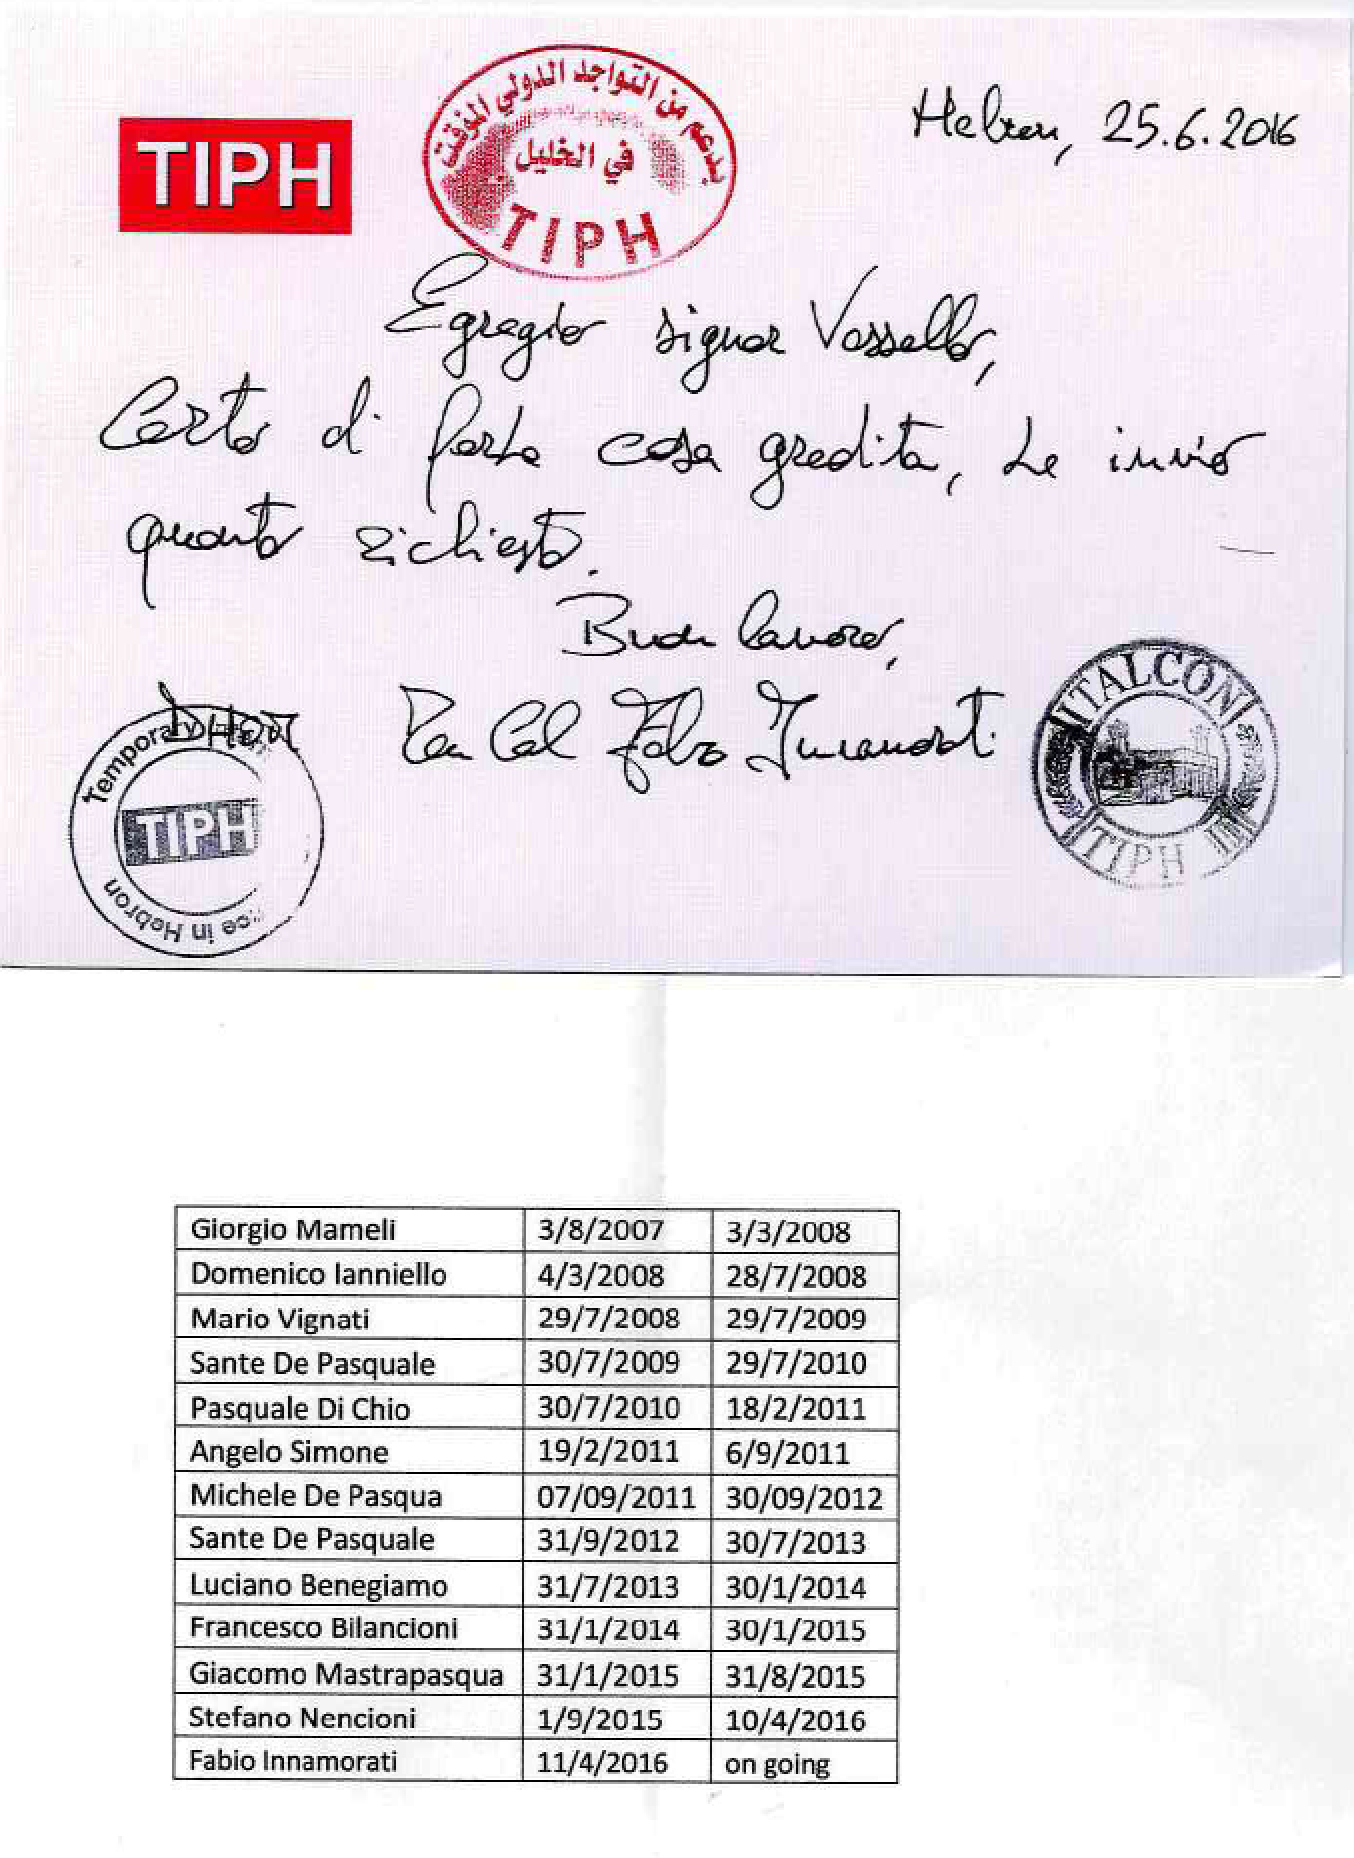 TIPH
بدعم من التواجد الدولي المؤقت
في الخليل
TIPH
Hebron, 25.6.2016
Egregio signor Vassallo,
Certo di farLe cosa gradita, Le invio
quanto richiesto.
Buon lavoro,
Ten Col Fabio Innamorati
Temporary
TIPH
ce in Hebron
ITALCON
TIPH III
Giorgio Mameli 3/8/2007 3/3/2008
Domenico Ianniello 4/3/2008 28/7/2008
Mario Vignati 29/7/2008 29/7/2009
Sante De Pasquale 30/7/2009 29/7/2010
Pasquale Di Chio 30/7/2010 18/2/2011
Angelo Simone 19/2/2011 6/9/2011
Michele De Pasqua 07/09/2011 30/09/2012
Sante De Pasquale 31/9/2012 30/7/2013
Luciano Benegiamo 31/7/2013 30/1/2014
Francesco Bilancioni 31/1/2014 30/1/2015
Giacomo Mastrapasqua 31/1/2015 31/8/2015
Stefano Nencioni 1/9/2015 10/4/2016
Fabio Innamorati 11/4/2016 on going